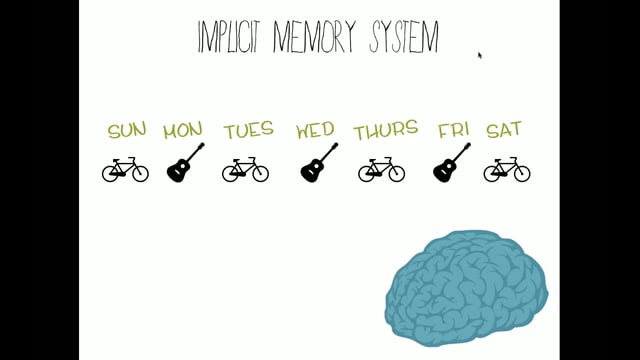 IMPLICIT MEMORY SYSTEM
SUN MON TUES WED THURS FRI SAT